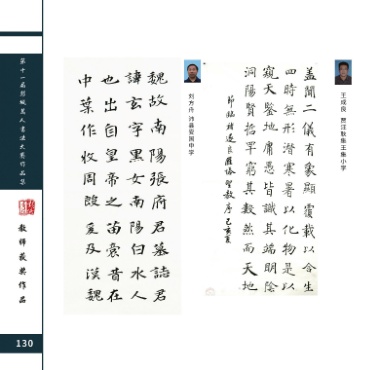 王成良 贾汪耿集王集小学
盖聞二儀有象顯覆載以含生
四時無形潛寒暑以化物是以
窺天鑑地庸愚皆識其端明陰
洞陽賢哲罕窮其數然而天地
節臨褚遂良雁塔聖教序己亥夏
刘方舟 沛县安国中学
魏故南陽張府君墓誌君
諱玄字黑女南陽白水人
也出自皇帝之苗裔昔在
中葉作牧周殷爰及漢魏
第十一届彭城万人书法大赛作品集
教师获奖作品
130